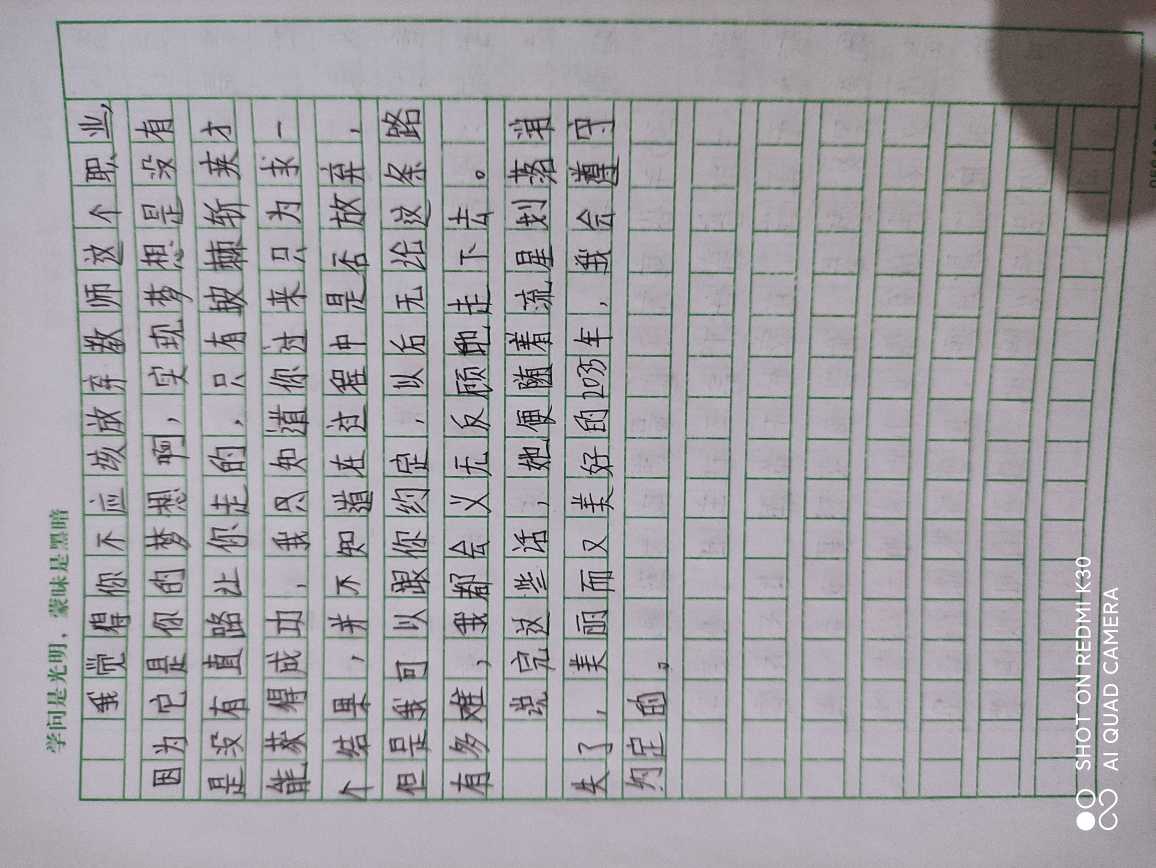 学问是光明，蒙昧是黑暗
我觉得你不应该放弃教师这个职业，
因为它是你的梦想啊，实现梦想是没有
是没有直路让你走的，只有披荆斩棘才
能获得成功，我只知道你过来只为求一
个结果，并不知道在过程中是否放弃，
但是我可以跟你约定，以后无论这条路
有多难，我都会义无反顾地走下去。
说完这些话，她便随着流星划落消
失了，美丽而又美好的2035年，我会遵守
约定的。
SHOT ON REDMI K30
AI QUAD CAMERA